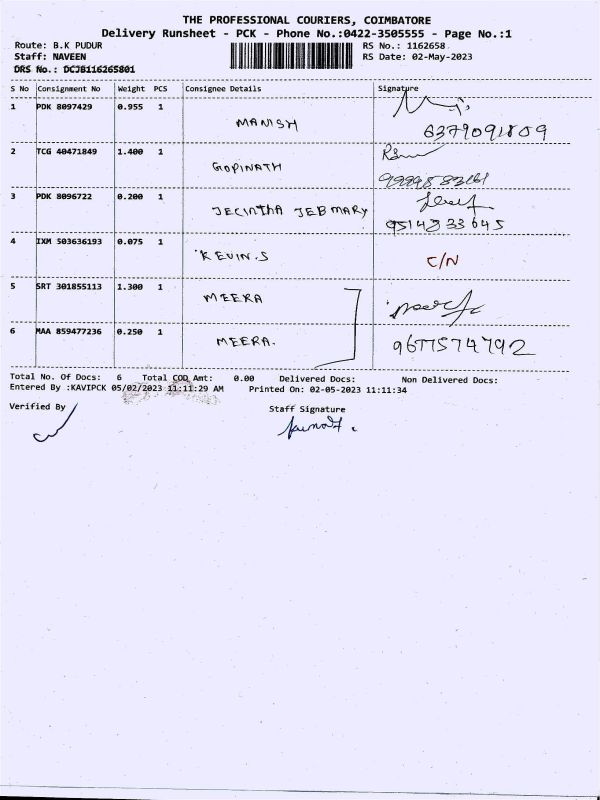 THE PROFESSIONAL COURIERS, COIMBATORE
Delivery Runsheet - PCK - Phone No.:0422-3505555 - Page No.:1
Route: B.K PUDUR RS No.: 1162658
Staff: NAVEEN RS Date: 02-May-2023
DRS No.: DCJB116265801
S No Consignment No Weight PCS Consignee Details Signature
1 PDK 8097429 0.955 1
MANISH 6379091809
2 TCG 40471849 1.400 1
GOPINATH
3 PDK 8096722 0.200 1
JECINTHA JEBMARY 9514233645
4 IXM 503636193 0.075 1
KEVIN.S C/N
5 SRT 301855113 1.300 1
MEERA
6 MAA 859477236 0.250 1
MEERA. 9677574792
Total No. Of Docs: 6 Total COD Amt: 0.00 Delivered Docs: Non Delivered Docs:
Entered By :KAVIPCK 05/02/2023 11:11:29 AM Printed On: 02-05-2023 11:11:34
Verified By Staff Signature